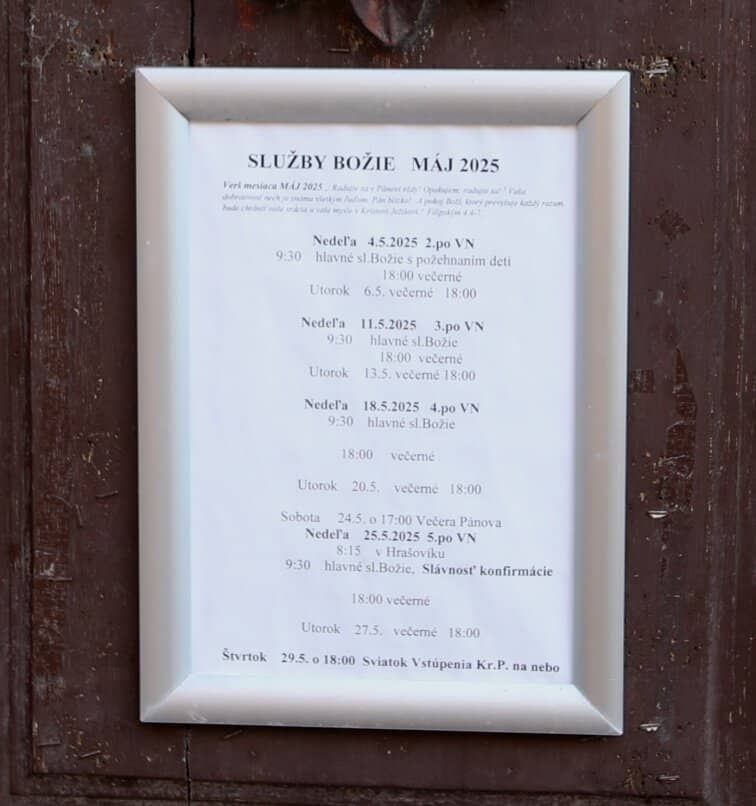 SLUŽBY BOŽIE MÁJ 2025
Verš mesiaca MÁJ 2025 „ Radujte sa v Pánovi vždy! Opakujem: radujte sa! Vaša
dobrotivosť nech je známa všetkým ľuďom. Pán blízko! A pokoj Boží, ktorý prevyšuje každý rozum,
bude chrániť vaše srdcia a vaše mysle v Kristovi Ježišovi." Filipským 4,4-7.
Nedeľa 4.5.2025 2.po VN
9:30 hlavné sl.Božie s požehnaním detí
18:00 večerné
Utorok 6.5. večerné 18:00
Nedeľa 11.5.2025 3.po VN
9:30 hlavné sl.Božie
18:00 večerné
Utorok 13.5. večerné 18:00
Nedeľa 18.5.2025 4.po VN
9:30 hlavné sl.Božie
18:00 večerné
Utorok 20.5. večerné 18:00
Sobota 24.5. o 17:00 Večera Pánova
Nedeľa 25.5.2025 5.po VN
8:15 v Hrašovíku
9:30 hlavné sl.Božie, Slávnosť konfirmácie
18:00 večerné
Utorok 27.5. večerné 18:00
Štvrtok 29.5. o 18:00 Sviatok Vstúpenia Kr.P. na nebo